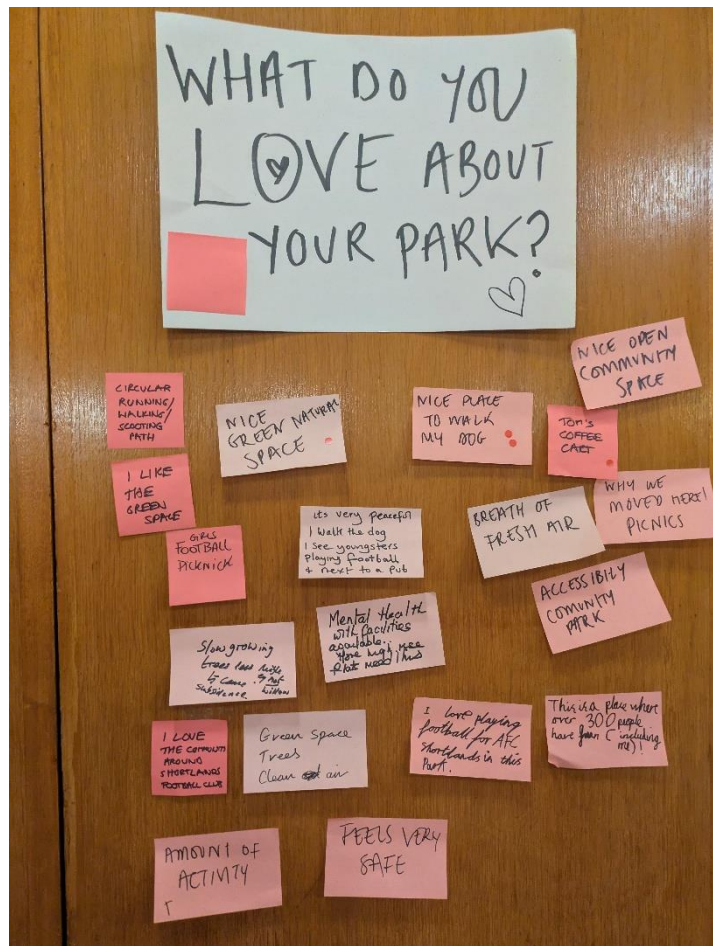 WHAT DO YOU
LOVE ABOUT
YOUR PARK?
NICE OPEN
COMMUNITY
SPACE
CIRCULAR
RUNNING/
WALKING/
SCOOTING
PATH
NICE
GREEN NATURAL
SPACE
NICE PLACE
TO WALK
MY DOG
TOM'S
COFFEE
CART
I LIKE
THE
GREEN
SPACE
its very peaceful
I walk the dog
I see youngsters
playing football
& next to a pub
BREATH OF
FRESH AIR
WHY WE
MOVED HERE!
PICNICS
GIRLS
FOOTBALL
PICKNICK
ACCESSIBILY
COMUNITY
PARK
Slow growing
trees less
cause not
willow
Mental Health
with facilities
available.
More high rise
flats need this
I LOVE
THE COMMUNITY
AROUND
SHORTLANDS
FOOTBALL CLUB
Green space
Trees
Clean air
I love playing
football for AFC
Shortlands in this
Park.
This is a place where
over 300 people
have fun (including
me)!
AMOUNT OF
ACTIVITY
FEELS VERY
SAFE